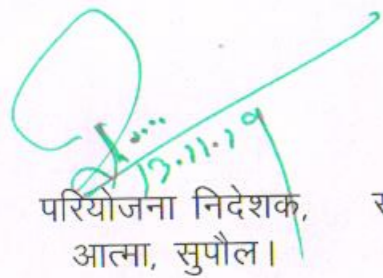 13.11.19
परियोजना निदेशक,
आत्मा, सुपौल।